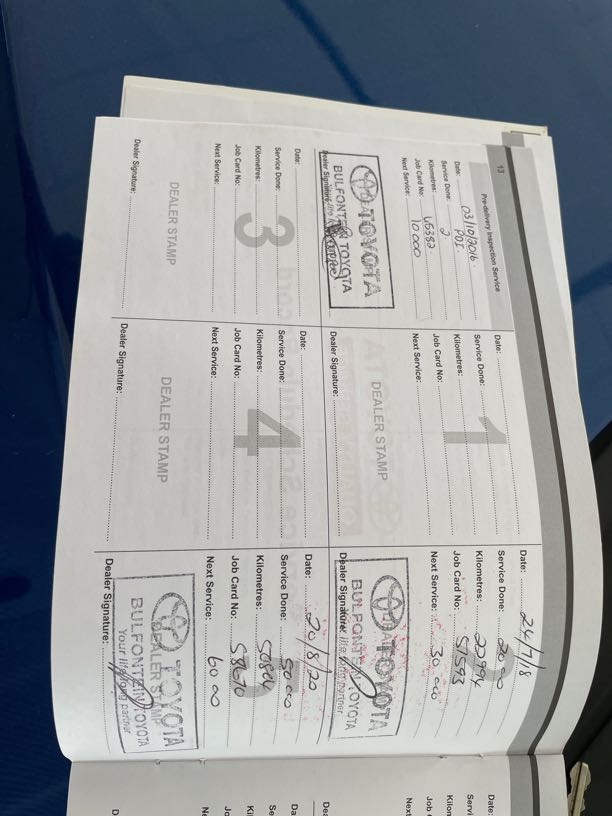 13
Pre-delivery Inspection Service
Date: 03/10/2016
Service Done: PDI
Kilometres: 2
Job Card No: 46382
Next Service: 10 000
Dealer Signature:
TOYOTA
BULFONTEIN TOYOTA
1
Date:
Service Done:
Kilometres:
Job Card No:
Next Service:
DEALER STAMP
Dealer Signature:
Date: 24/7/18
Service Done: 20 000
Kilometres: 22994
Job Card No: 51593
Next Service: 30 000
TOYOTA
BULFONTEIN TOYOTA
Dealer Signature:
3
Date:
Service Done:
Kilometres:
Job Card No:
Next Service:
DEALER STAMP
Dealer Signature:
4
Date:
Service Done:
Kilometres:
Job Card No:
Next Service:
DEALER STAMP
Dealer Signature:
Date: 20/8/20
Service Done: 50 000
Kilometres: 50804
Job Card No: 58670
Next Service: 60 00
TOYOTA
DEALER STAMP
BULFONTEIN TOYOTA
Your lifelong partner
Dealer Signature: